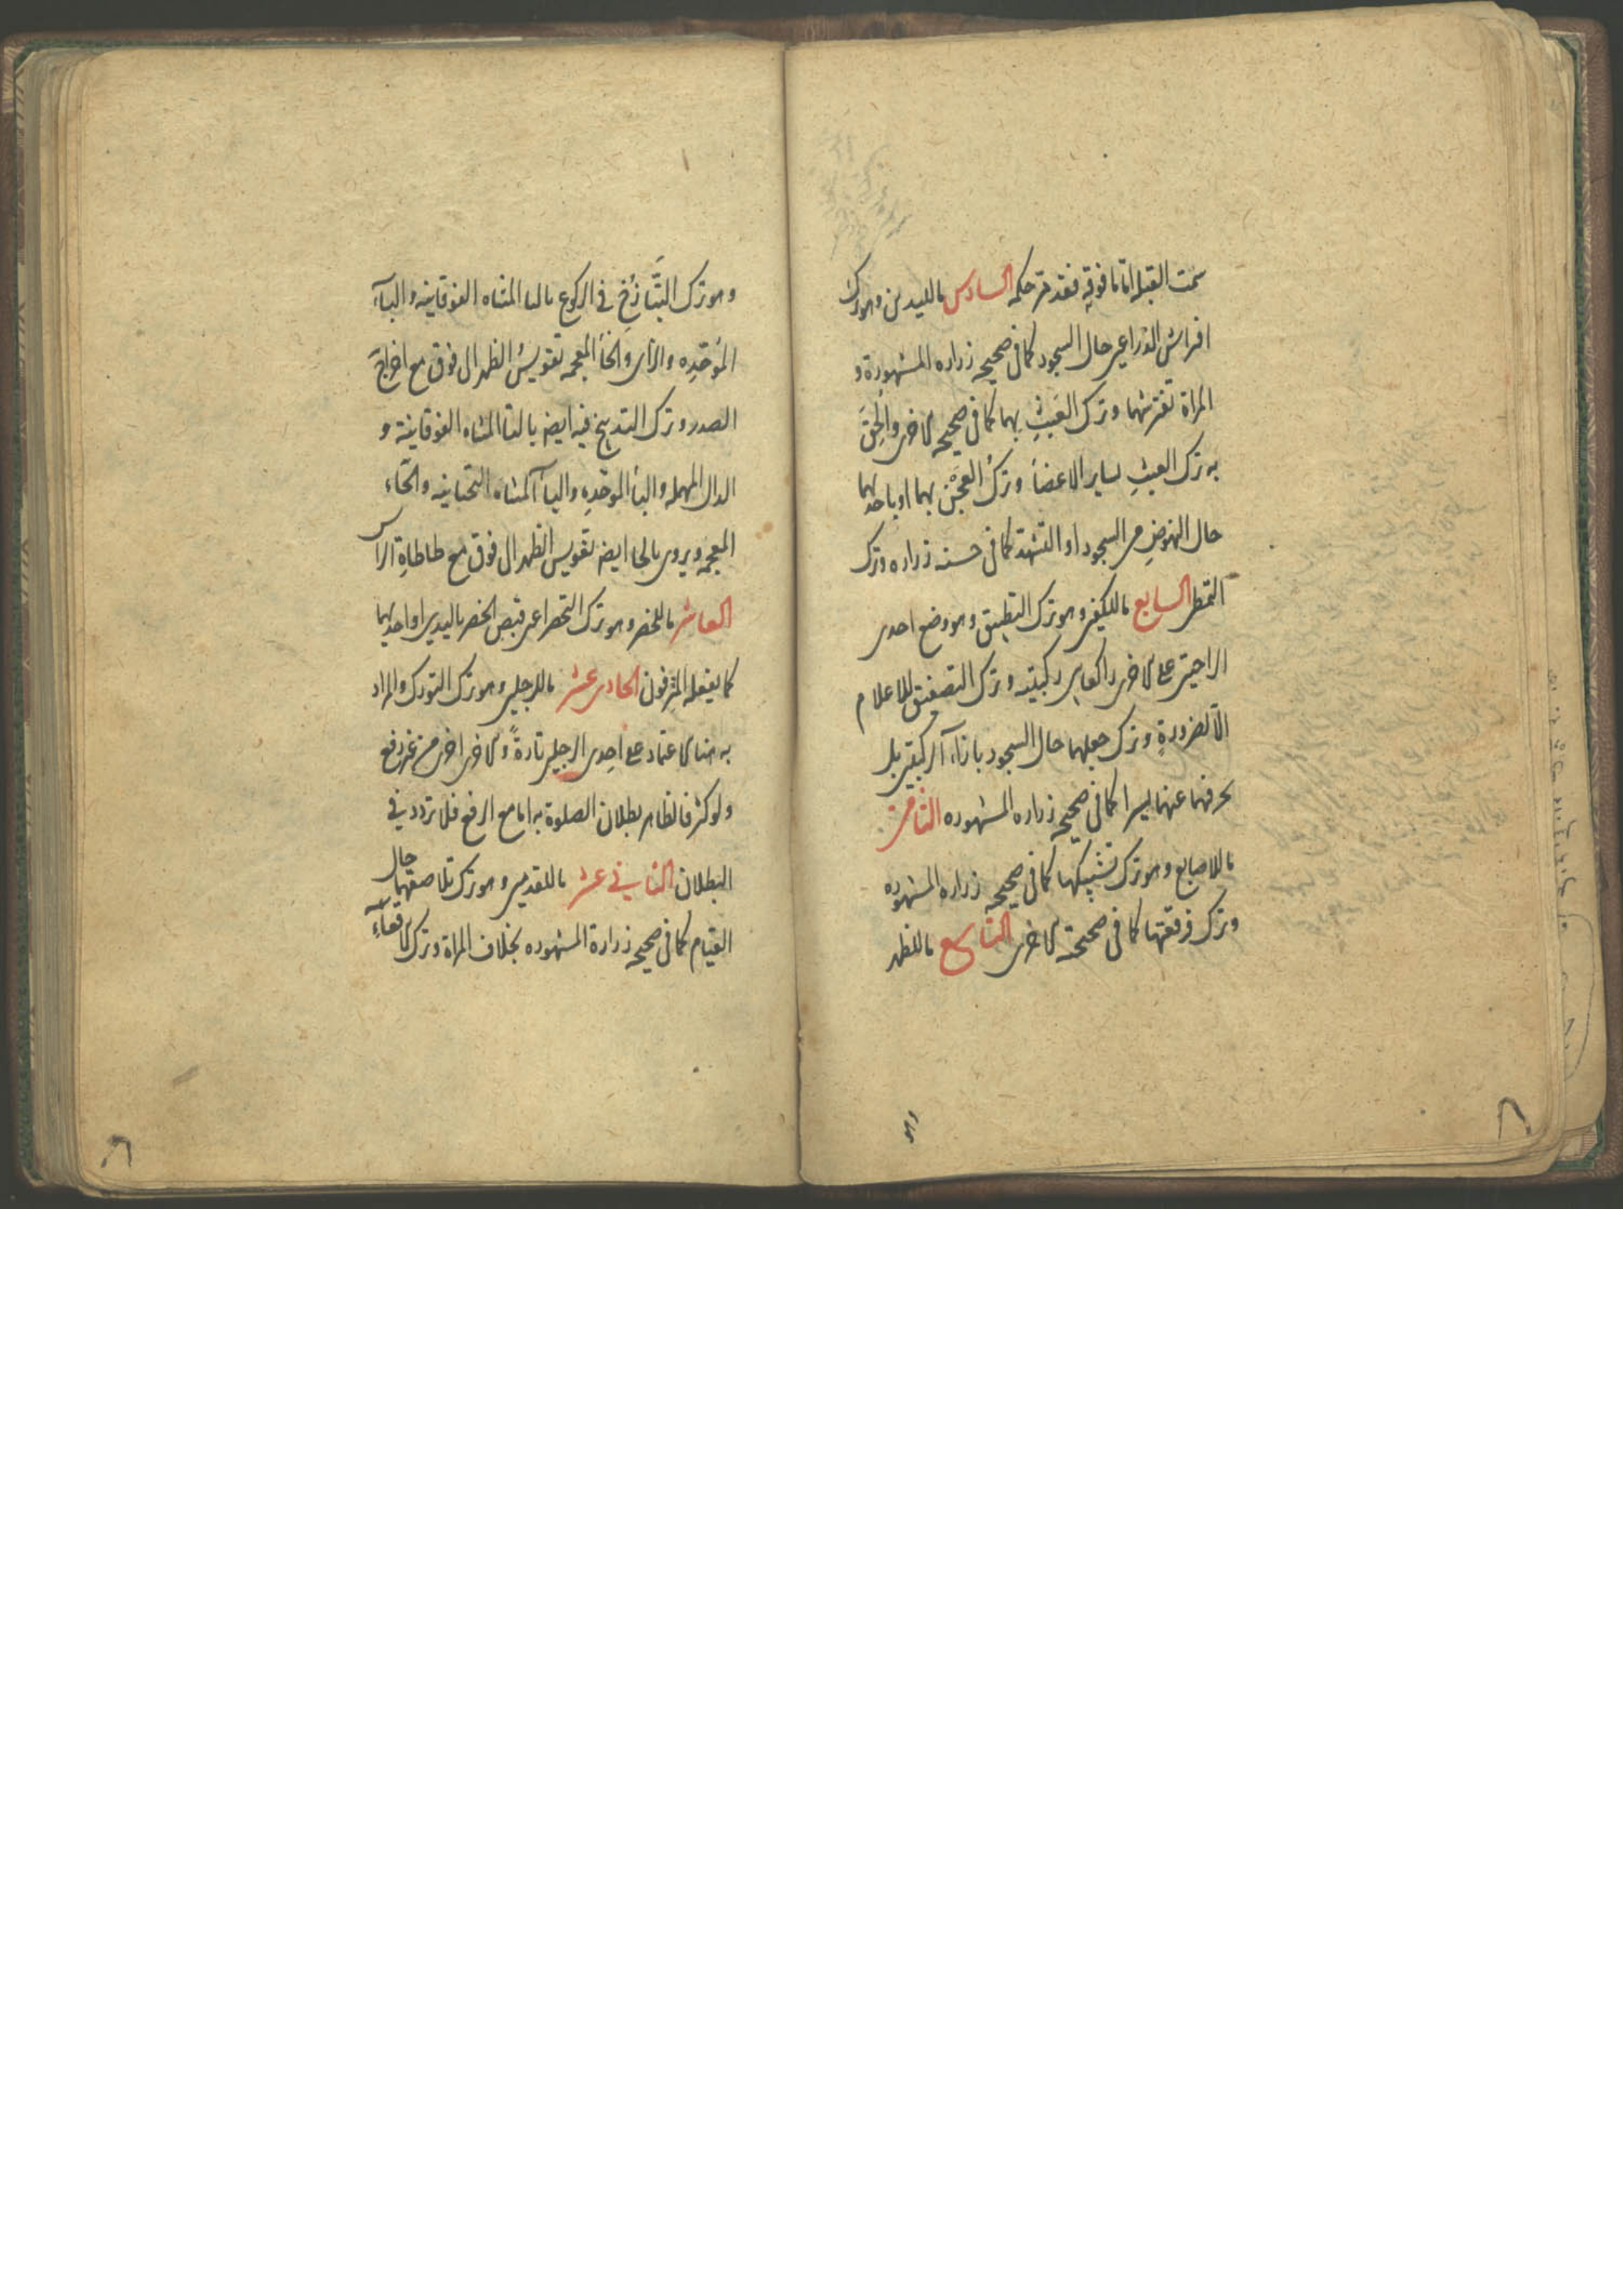 سمت القبله اما ما فوقه فقد مر حكمه السادس ما لليدين وهو ترك
افتراش الذراعين حال السجود كما فى صحيحه زراره المشهورة و
المراة تفترشهما وترك العبث بهما كما فى صحيحه الاخرى والحق
به ترك العبث لساير الاعضا وترك العجن بهما او باحدهما
حال النهوض من السجود او التشهد كما فى حسنه زراره وترك
التمطى السابع ما للكفين وهو ترك التطبيق وهو وضع احدى
الراحتين على الاخرى راكعا بين ركبتيه وترك التصفيق للاعلام
الا لضرورة وترك جعلهما حال السجود بازاء الركبتين بل
يحرفهما عنهما يسيرا كما فى صحيحه زراره المشهوره الثامن
ما للاصابع وهو ترك تشبيكها كما فى صحيحه زراره المشهوره
وترك فرقعتها كما فى صحيحته الاخرى التاسع ما للظهر
وهو
وهو ترك التبازخ فى الركوع بالتا المثناه الفوقانيه والباء
الموحده والزاى والخا المعجمه تقويس الظهر الى فوق مع اخراج
الصدر وترك التدبيخ فيه ايضا بالتا المثناه الفوقانية و
الدال المهمله والبا الموحده واليا المثناه التحتانيه والخاء
المعجمه ويروى بالحا ايضا تقويس الظهر الى فوق مع طاطاة الراس
العاشر ما للخصر وهو ترك التخصر اعنى قبض الخصر باليدين او احديهما
كما يفعله المترفون الحادى عشر ما للرجلين وهو ترك التورك والمراد
به هنا الاعتماد على احدى الرجلين تارة والاخرى اخرى من غير رفع
ولو كثر فالظاهر بطلان الصلوة به اما مع الرفع فلا تردد فى
البطلان الثانى عشر ما للقدمين وهو ترك تلاصقهما حال
القيام كما فى صحيحه زرارة المشهوره بخلاف المراة وترك الاقعاء